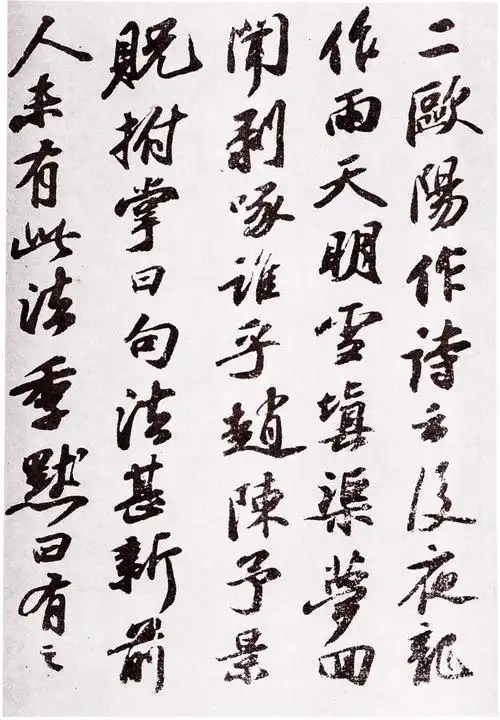 二歐陽作詩云後夜龍
作雨天明雪填渠夢回
聞剥啄誰乎趙陳予景
貺拊掌曰句法甚新前
人未有此法季默曰有之